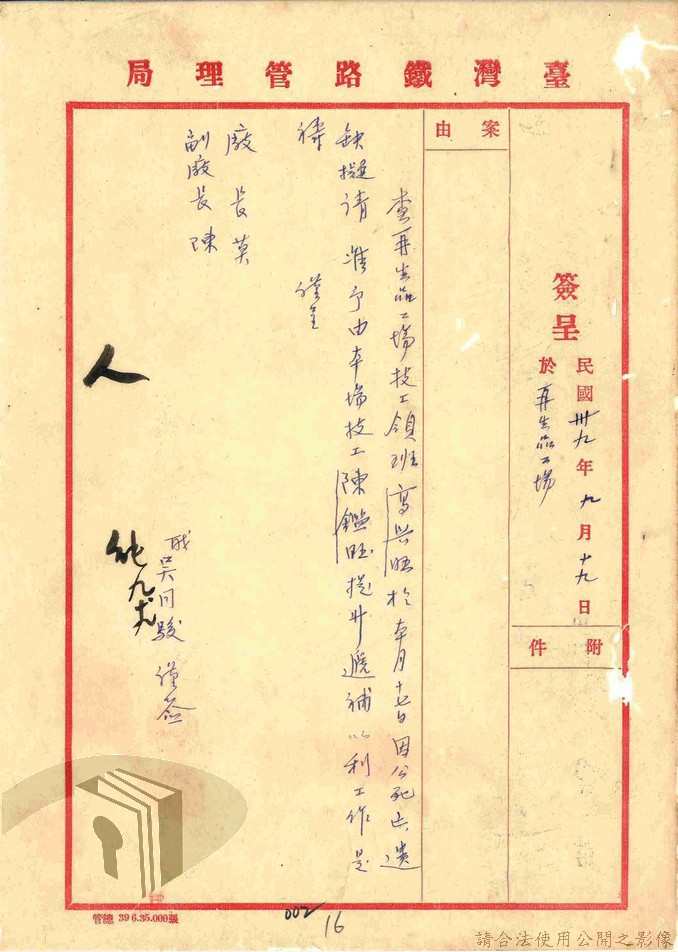 臺灣鐵路管理局
簽呈
民國卅九年九月十九日
於再生品工場
附件
案由
查再生品工場技工領班高興旺於本月十七日因公死亡遺
缺擬请準予由本場技工陳鑑旺提升遞補以利工作是
禱
謹呈
廠長莫
副廠長陳
職吳同駿謹簽
人
002
16
管總 39 6.35.000張
請合法使用公開之影像